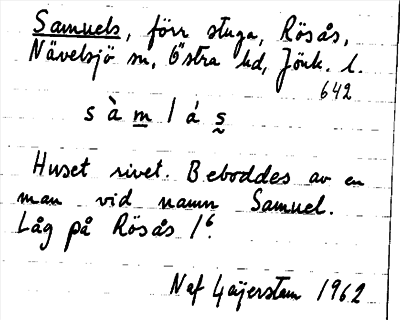 Samuels, förr stuga, Rösås,
Nävelsjö sn, Östra hd, Jönk. l.
642
s à m l á s
Huset rivet. Beboddes av en
man vid namn Samuel.
Låg på Rösås 1⁶.
Naf Gaijerstam 1962